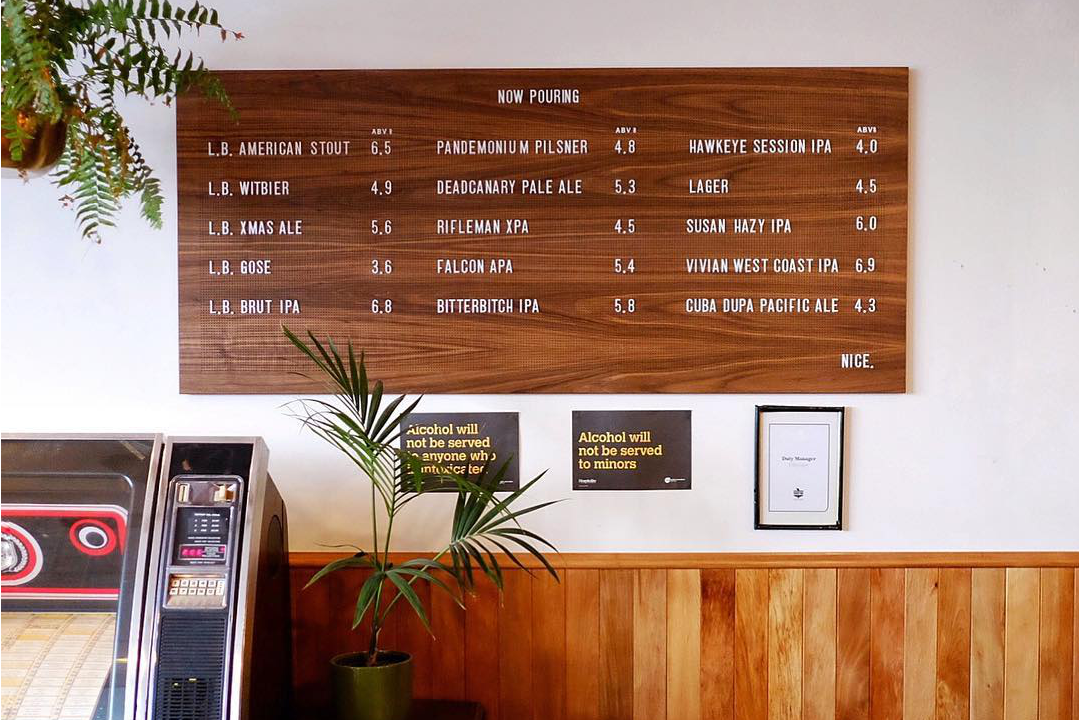 NOW POURING
ABV%
L.B. AMERICAN STOUT 6.5
L.B. WITBIER 4.9
L.B. XMAS ALE 5.6
L.B. GOSE 3.6
L.B. BRUT IPA 6.8
ABV%
PANDEMONIUM PILSNER 4.8
DEADCANARY PALE ALE 5.3
RIFLEMAN XPA 4.5
FALCON APA 5.4
BITTERBITCH IPA 5.8
ABV%
HAWKEYE SESSION IPA 4.0
LAGER 4.5
SUSAN HAZY IPA 6.0
VIVIAN WEST COAST IPA 6.9
CUBA DUPA PACIFIC ALE 4.3
NICE.
Alcohol will
not be served
to anyone who
is intoxicated
Alcohol will
not be served
to minors
Duty Manager